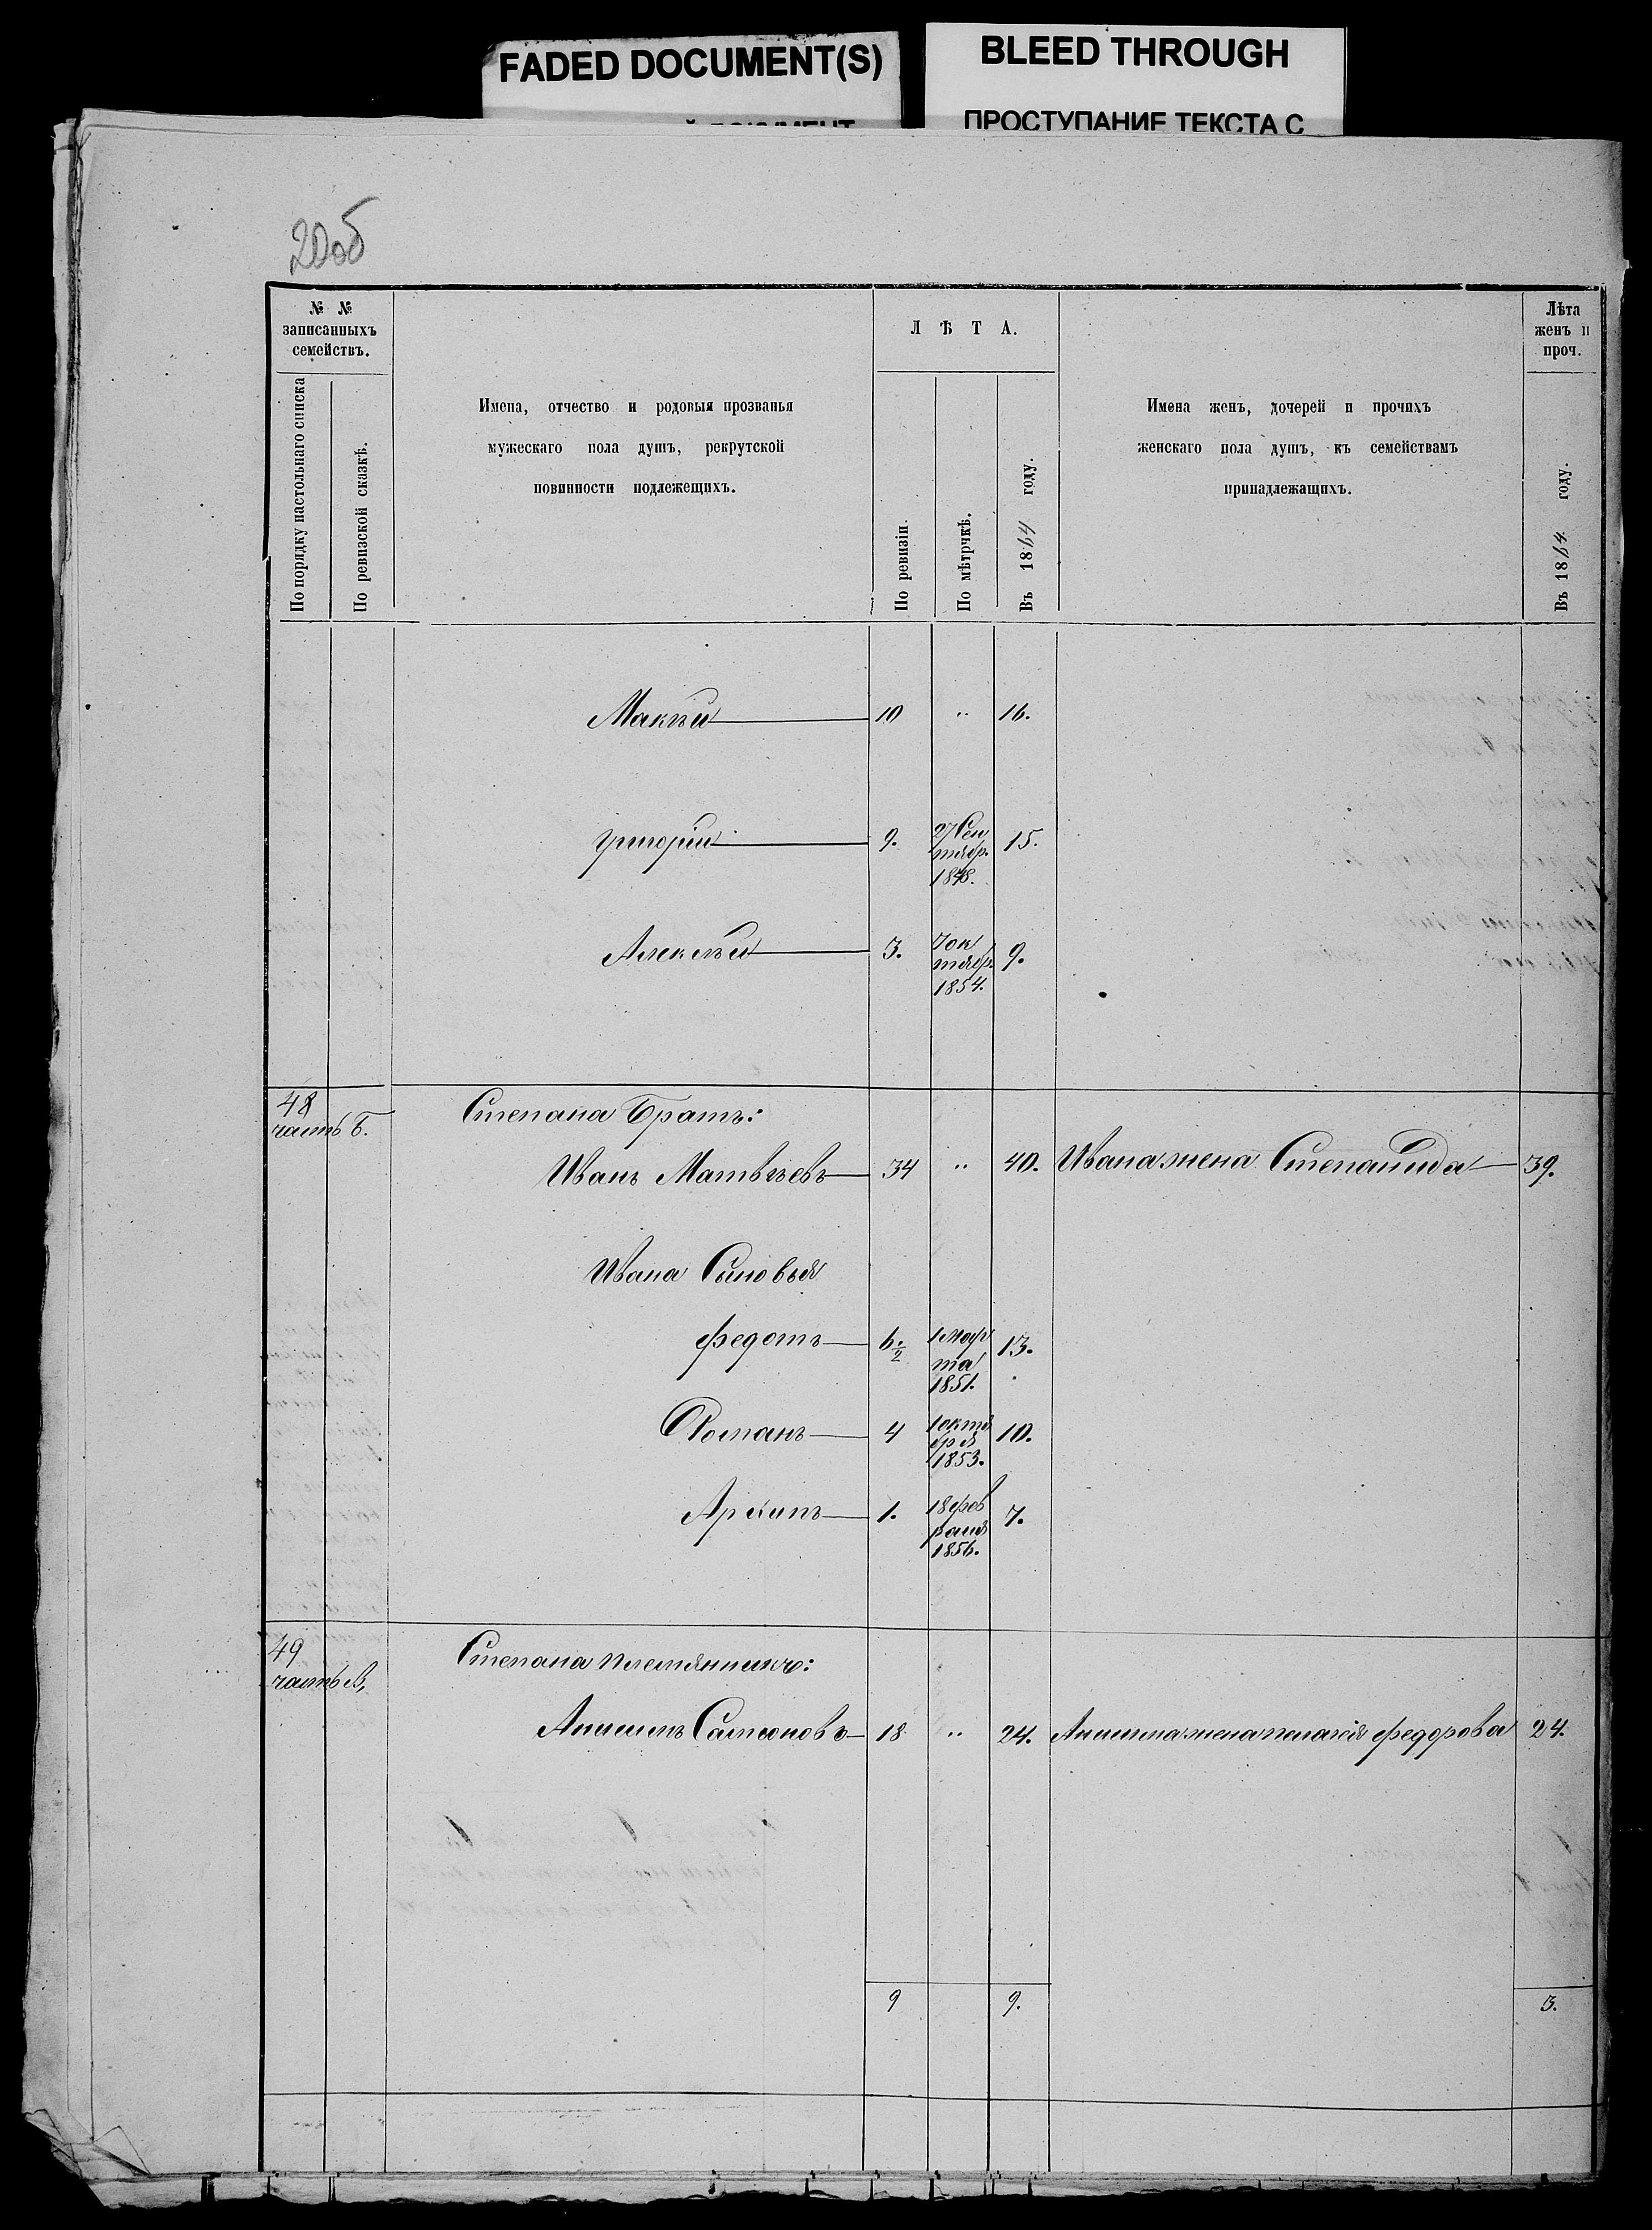 FADED DOCUMENT(S)
BLEED THROUGH
ПРОСТУПАНИЕ ТЕКСТА С
20об
№ №
записанныхъ
семействъ.
По порядку настольнаго списка
По ревизской сказкѣ.
Имена, отчество и родовыя прозванья
мужескаго пола душъ, рекрутской
повинности подлежещихъ.
ЛѢТА.
По ревизіи.
По мѣтрчкѣ.
Въ 1864 году.
Имена женъ, дочерей и прочихъ
женскаго пола душъ, къ семействамъ
принадлежащихъ.
Лѣта
женъ и
проч.
Въ 1864 году.
Макѣй 10 " 16.
Григорій 9. 27 Сен
тябр.
1848.
15.
Алексѣй 3. 7 ок
тябр.
1854.
9.
48
часть Б.
Степана Братъ:
Иванъ Матвѣевъ 34 " 40. Ивана жена Степанида 39.
Ивана Сыновья
Федотъ 6½ 1 мар
та
1851.
13.
Романъ 4 1 октя
бря
1853.
10.
Архипъ 1. 18 фев
раля
1856.
7.
49
часть В,
Степана племянникъ:
Анисимъ Самсоновъ 18 " 24. Анисима жена пелагея федорова 24.
9 9. 3.